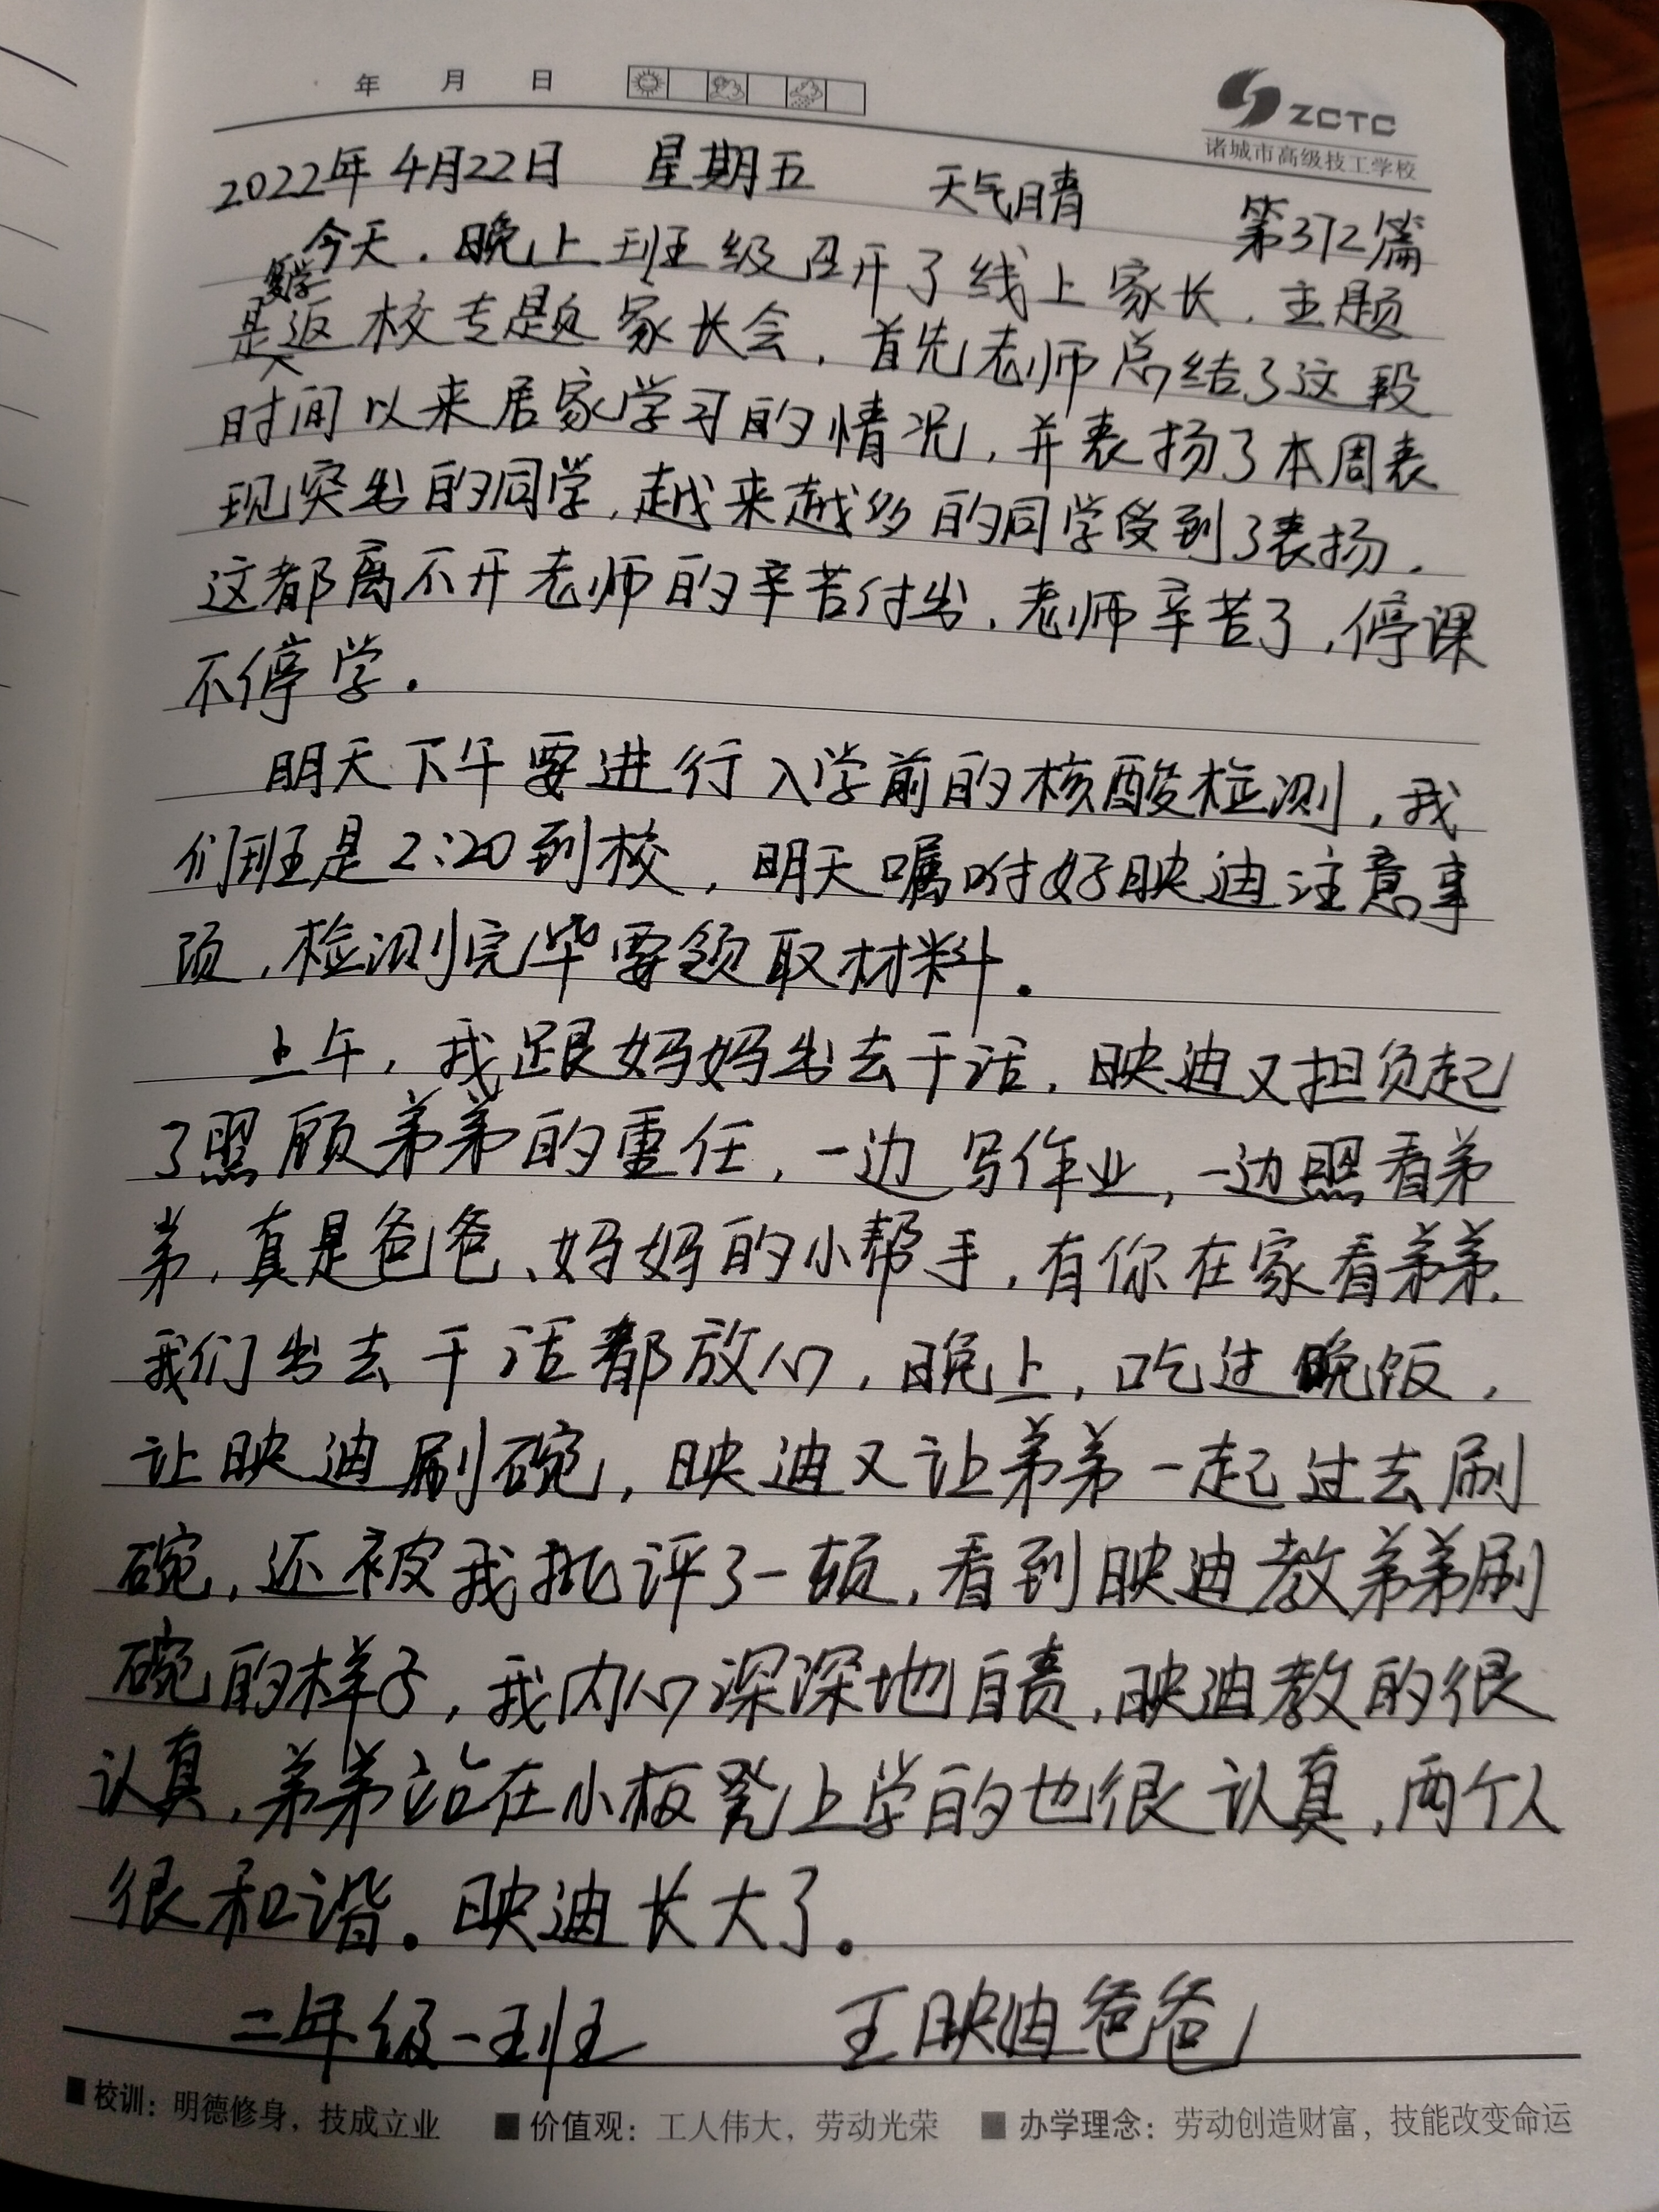 年 月 日
ZCTC
诸城市高级技工学校
2022年4月22日 星期五 天气晴 第372篇
今天,晚上班级召开了线上家长,主题
复学
是返校专题家长会,首先老师总结了这段
时间以来居家学习的情况,并表扬了本周表
现突出的同学,越来越多的同学受到了表扬,
这都离不开老师的辛苦付出,老师辛苦了,停课
不停学.
明天下午要进行入学前的核酸检测,我
们班是2:20到校,明天嘱咐好映迪注意事
项,检测完毕要领取材料.
上午,我跟妈妈出去干活,映迪又担负起
了照顾弟弟的重任,一边写作业,一边照看弟
弟,真是爸爸、妈妈的小帮手,有你在家看弟弟,
我们出去干活都放心,晚上,吃过晚饭,
让映迪刷碗,映迪又让弟弟一起过去刷
碗,还被我批评了一顿,看到映迪教弟弟刷
碗的样子,我内心深深地自责,映迪教的很
认真,弟弟站在小板凳上学的也很认真,两个人
很和谐.映迪长大了.
二年级一班 王映迪爸爸
■校训:明德修身,技成立业 ■价值观:工人伟大,劳动光荣 ■办学理念:劳动创造财富,技能改变命运